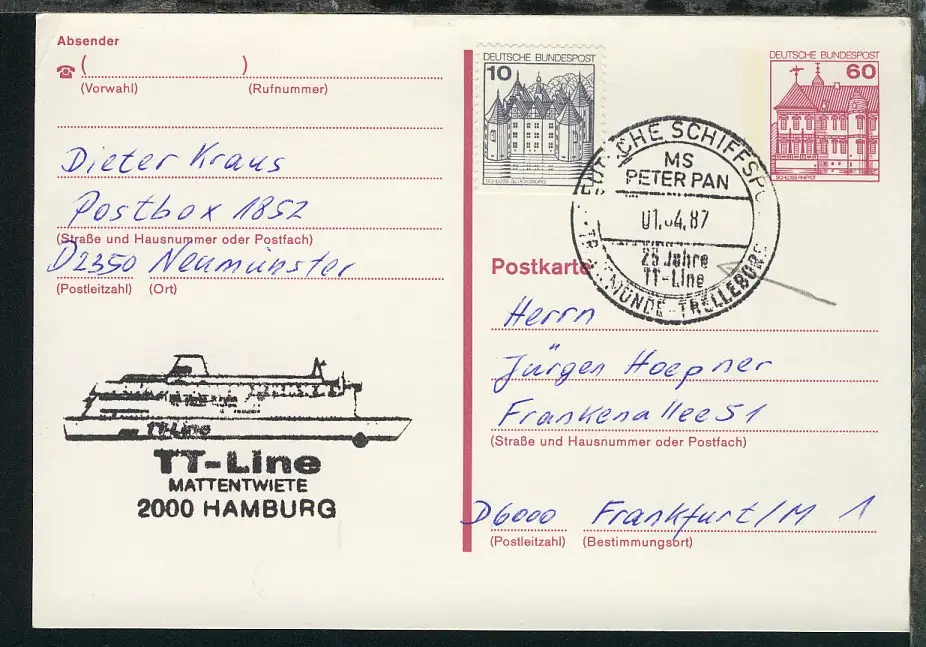 Absender
( )
(Vorwahl) (Rufnummer)
Dieter Kraus
Postbox 1852
(Straße und Hausnummer oder Postfach)
D2350 Neumünster
(Postleitzahl) (Ort)
TT-Line
TT-Line
MATTENTWIETE
2000 HAMBURG
DEUTSCHE BUNDESPOST
10
SCHLOSS GLÜCKSBURG
DEUTSCHE BUNDESPOST
60
SCHLOSS RHEYDT
MS
PETER PAN
01.04.87
25 Jahre
TT-Line
TRELLEBORG
Postkarte
Herrn
Jürgen Hoepner
Frankenallee 51
(Straße und Hausnummer oder Postfach)
D6000 Frankfurt/M 1
(Postleitzahl) (Bestimmungsort)